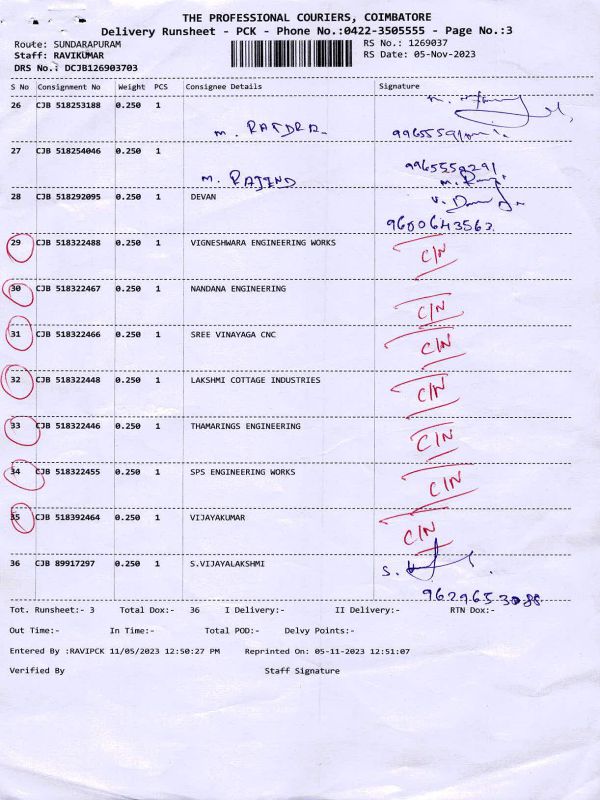 THE PROFESSIONAL COURIERS, COIMBATORE
Delivery Runsheet - PCK - Phone No.:0422-3505555 - Page No.:3
Route: SUNDARAPURAM RS No.: 1269037
Staff: RAVIKUMAR RS Date: 05-Nov-2023
DRS No.: DCJB126903703
S No Consignment No Weight PCS Consignee Details Signature
26 CJB 518253188 0.250 1
M.
27 CJB 518254046 0.250 1
9965559291
M. RAJIND
28 CJB 518292095 0.250 1 DEVAN
9600643563
29 CJB 518322488 0.250 1 VIGNESHWARA ENGINEERING WORKS C/N
30 CJB 518322467 0.250 1 NANDANA ENGINEERING C/N
31 CJB 518322466 0.250 1 SREE VINAYAGA CNC C/N
32 CJB 518322448 0.250 1 LAKSHMI COTTAGE INDUSTRIES C/N
33 CJB 518322446 0.250 1 THAMARINGS ENGINEERING C/N
34 CJB 518322455 0.250 1 SPS ENGINEERING WORKS C/N
35 CJB 518392464 0.250 1 VIJAYAKUMAR C/N
36 CJB 89917297 0.250 1 S.VIJAYALAKSHMI S.
9629653088
Tot. Runsheet:- 3 Total Dox:- 36 I Delivery:- II Delivery:- RTN Dox:-
Out Time:- In Time:- Total POD:- Delvy Points:-
Entered By :RAVIPCK 11/05/2023 12:50:27 PM Reprinted On: 05-11-2023 12:51:07
Verified By Staff Signature